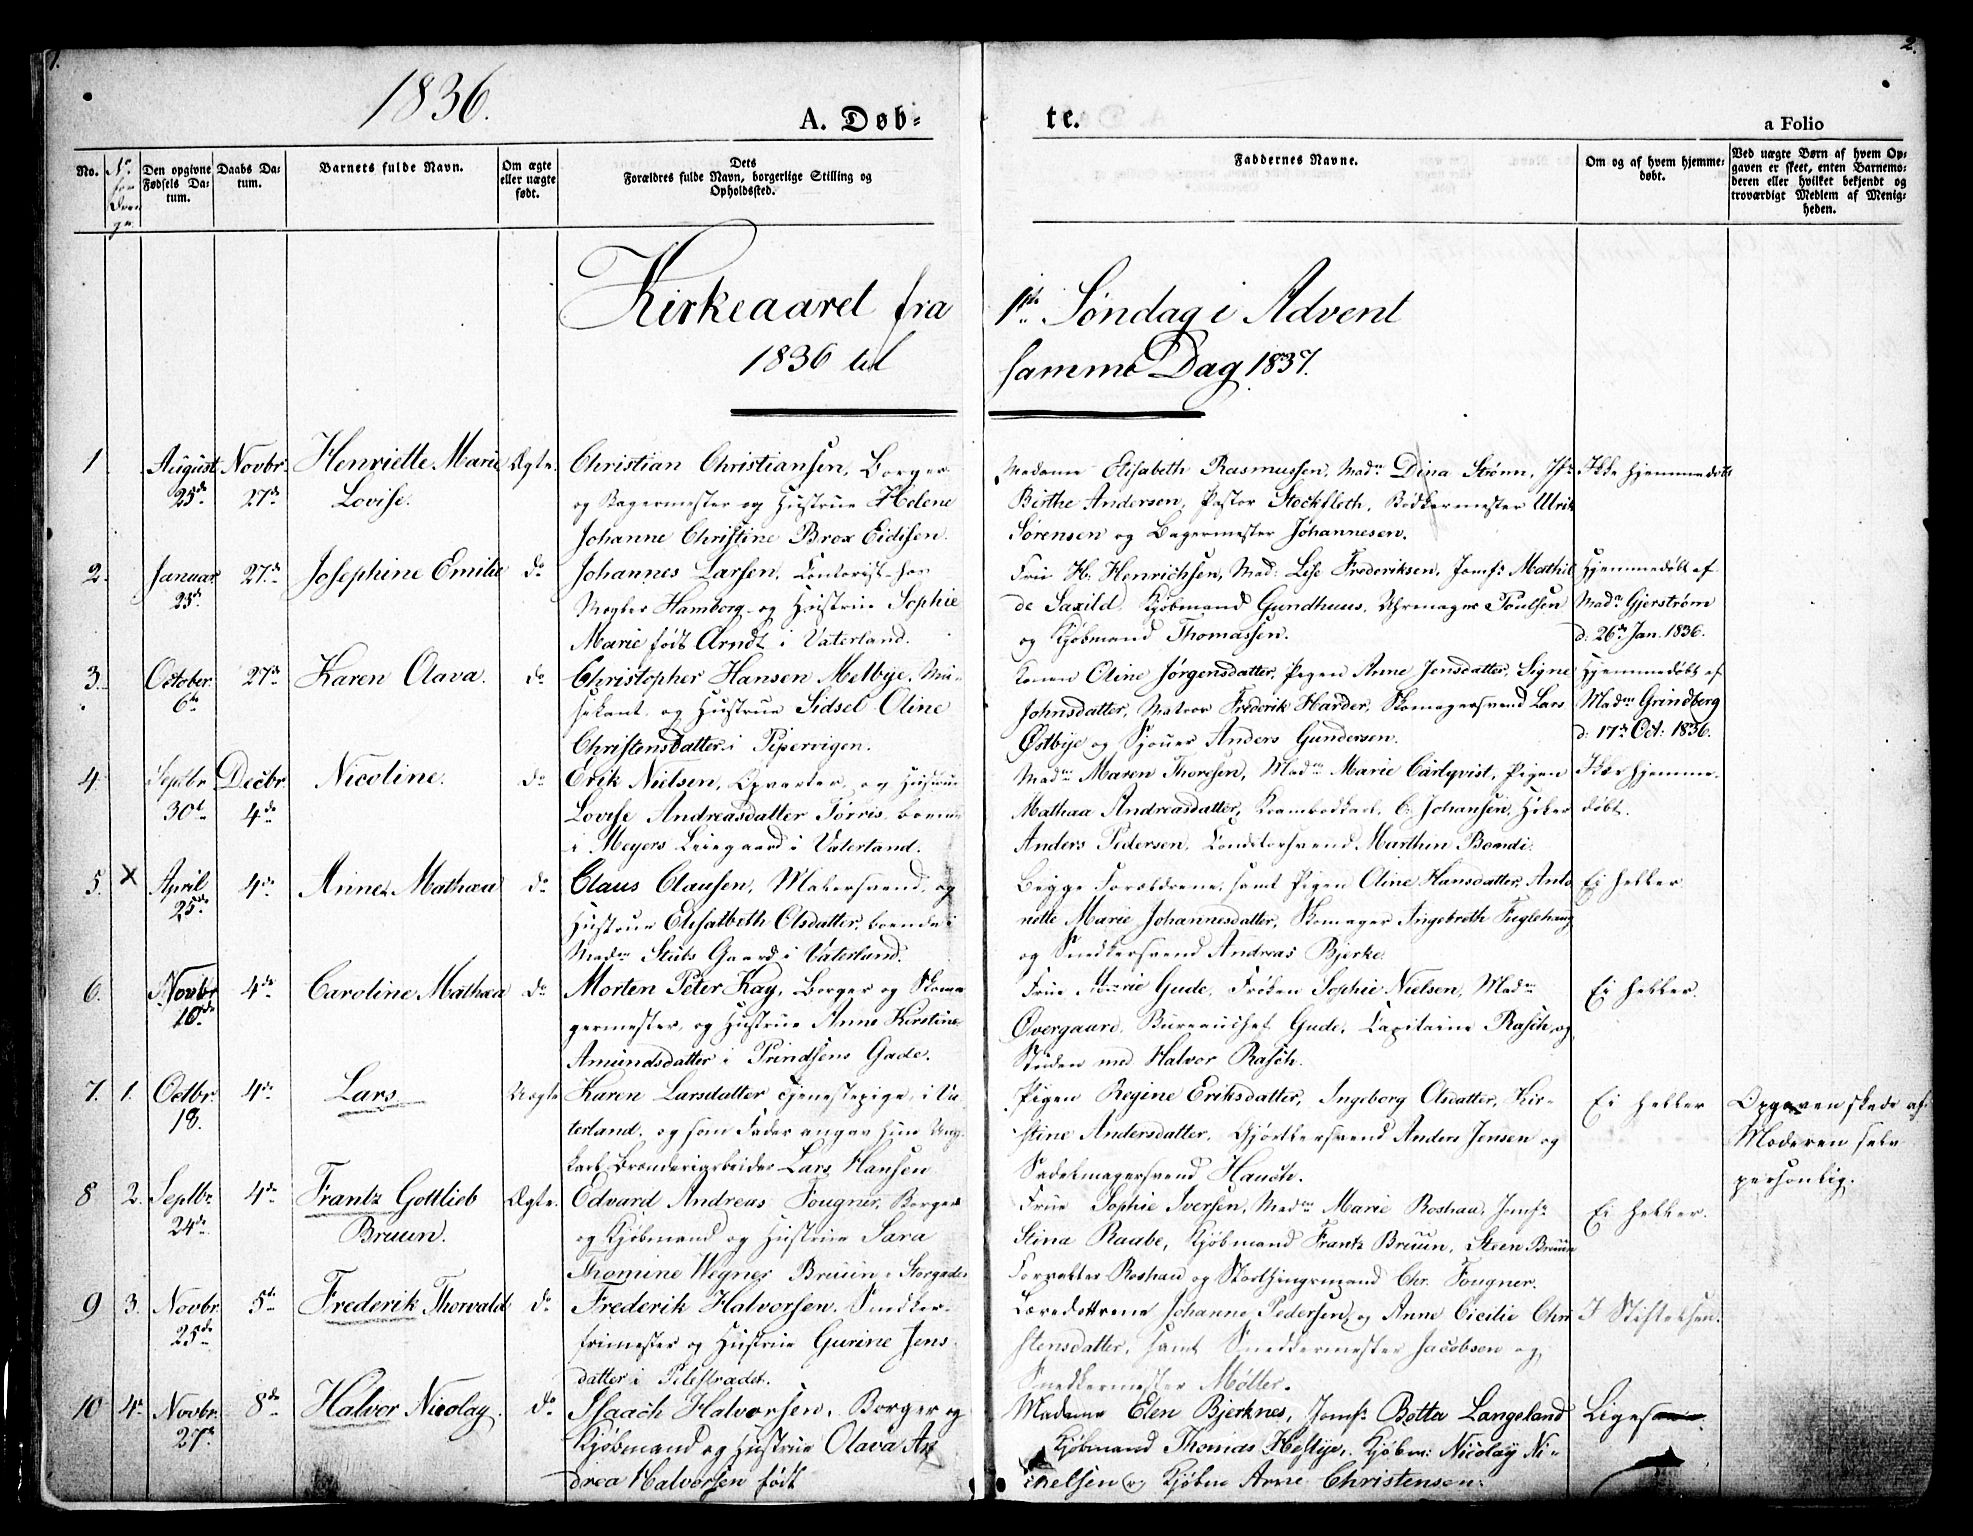 1.
2.
1836.
A. Døb-
te.
a Folio
No.
No for Drenge
Den opgivne Fødsels Datum.
Daabs Datum.
Barnets fulde Navn.
Om ægte eller uægte født.
Dets Forældres fulde Navn, borgerlige Stilling og Opholdsted.
Faddernes Navne.
Om og af hvem hjemmedøbt.
Ved uægte Børn af hvem Opgaven er skeet, enten Barnemoderen eller hvilket bekjendt og troværdigt Medlem af Menigheden.
Kirkeaaret fra 1ste Søndag i Advent
1836 til samme Dag 1837.
1 August 25de Novbr. 27de Henriette Marie Lovise. Ægte.
Christian Christiansen, Borger
og Bagermester og Hustrue Helene
Johanne Christine Brox Eidesen.
Madame Elisabeth Rasmussen, Madm Dina Strømn, Jfr
Birthe Andersen, Pastor Stockfleth, Bødkermester Ulrik
Sørensen og Bagermester Johannesen.
Ikke hjemmedøbt
2. Januar 25de 27de Josephine Emilie do
Johannes Larsen, Contorist hos
Mægler Hamborg og Hustrue Sophie
Marie født Arndt i Vaterland.
Frue H. Henrichsen, Mad. Lise Frederiksen, Jomfr Mathil
de Saxild, Kjøbmand Gundhuus, Uhrmager Poulsen
og Kjøbmand Thomassen.
Hjemmedøbt af
Madm Gjerstrøm
d. 26de Jan. 1836.
3. October 6te 27de Karen Olava. do
Christopher Hansen Melbye, Mu-
sekant, og Hustrue Sidsel Oline
Christensdatter i Pipervigen.
Konen Oline Jørgensdatter, Pigen Anne Jensdatter, Signe
Johnsdatter, Matros Frederik Harder, Skomagersvend Lars
Østbye og Sjouer Anders Gundersen.
Hjemmedøbt af
Madm Grindberg
d. 17de Oct. 1836.
4. Septbr 30te Decbr. 4de Nicoline. do
Erik Nielsen, Opvarter, og Hustrue
Lovise Andreasdatter Torris, boende
i Meyers Leiegaard i Vaterland.
Madm Maren Thoresen, Madm Marie Carlqvist, Pigen
Mathaa Andreasdatter, Krambodkarl C. Johansen, Høker
Anders Pedersen, Conditorsvend Marthin Bomdi.
Ikke hjemme-
døbt.
5. × April 25de 4de Anne Mathæa do
Claus Clausen, Malersvend, og
Hustrue Elisabeth Olsdatter, boende i
Madm Stubs Gaard i Vaterland.
Begge Forældrene, samt Pigen Oline Hansdatter, Anto
nette Marie Johannesdatter, Skomager Ingebreth Fuglehaug
og Snedkersvend Andreas Bjerke.
Ei heller
6. Novbr 10de 4de Caroline Mathæa do
Morten Peter Kay, Borger og Skoma
germester, og Hustrue Anne Kirstine
Amundsdatter i Prindsens Gade.
Frue Marie Gude, Frøken Sophie Nielsen, Madm
Overgaard, Bureauchef Gude, Capitaine Rasch, og
Studen med Halvor Rasch.
Ei heller.
7. 1. Octbr. 18. 4de Lars. Uægte
Karen Larsdatter Tjenestepige i Va
terland, og som Fader angav hun Ung
karl Brænderiarbeider Lars Hansen
Pigen Regine Eriksdatter, Ingeborg Olsdatter, Kir-
stine Andersdatter, Gjørtlersvend Anders Jensen og
Sadelmagersvend Hauch.
Ei heller
Opgaven skede af
Moderen selv
personlig.
8 2. Septbr 24de 4de Frantz Gottlieb Bruun. Ægte.
Edvard Andreas Fougner, Borger
og Kjøbmand og Hustrue Sara
Thomine Wegner Bruun i Storgaden
Frue Sophie Iversen, Madm Marie Roshau, Jomfr
Stina Raabe, Kjøbmand Frantz Bruun, Steen Bruun
Forvalter Roshau og Storthingsmand Chr. Fougner.
Ei heller.
9 3. Novbr. 25de 5te Frederik Thorvald do
Frederik Halvorsen, Snedker-
frimester og Hustrue Gurine Jens
datter i Pilestrædet.
Læredøttrene Johanne Pedersen og Anne Cicilie Chri
stensdatter, samt Snedkermester Jacobsen og
Snedkermester Møller.
I Stiftelsen.
10 4. Novbr. 27de 8de Halvor Nicolay. do
Isaach Halvorsen, Borger og
Kjøbmand og Hustrue Olava An
drea Halvorsen født
Madame Elen Bjerknes, Jomfr Botta Langeland
Kjøbmand Thomas Heftye, Kjøbm. Nicolay Ni-
chelsen og Kjøbm Arne Christensen.
Ligesaa